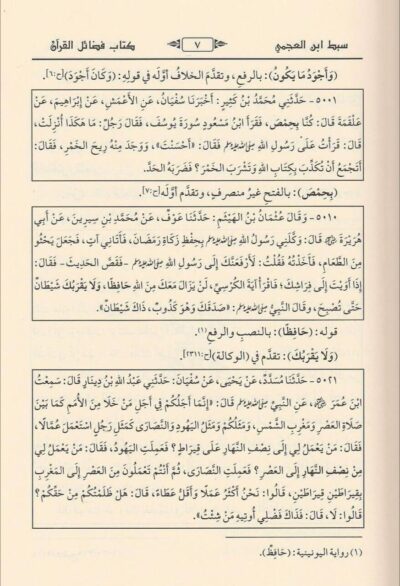 سبط ابن العجمي ٧ كتاب فضائل القرآن
(وَأَجْوَدُ مَا يَكُونُ): بالرفع، وتقدَّمَ الخلافُ أوَّلَه في قولِهِ: (وَكَانَ أَجْوَدَ)[ح:٦].
٥٠٠١ - حَدَّثَنِي مُحَمَّدُ بْنُ كَثِيرٍ: أَخْبَرَنَا سُفْيَانُ، عَنِ الأَعْمَشِ، عَنْ إِبْرَاهِيمَ، عَنْ
عَلْقَمَةَ قَالَ: كُنَّا بِحِمْصَ، فَقَرَأَ ابْنُ مَسْعُودٍ سُورَةَ يُوسُفَ، فَقَالَ رَجُلٌ: مَا هَكَذَا أُنْزِلَتْ،
قَالَ: قَرَأْتُ عَلَى رَسُولِ اللهِ صلى الله عليه وسلم فَقَالَ: «أَحْسَنْتَ»، وَوَجَدَ مِنْهُ رِيحَ الخَمْرِ، فَقَالَ:
أَتَجْمَعُ أَنْ تُكَذِّبَ بِكِتَابِ اللهِ وَتَشْرَبَ الخَمْرَ؟ فَضَرَبَهُ الحَدَّ.
(بِحِمْصَ): بالفتحِ غيرُ منصرفٍ، وتقدَّم أوَّلَه[ح:٧].
٥٠١٠ - وَقَالَ عُثْمَانُ بْنُ الهَيْثَمِ: حَدَّثَنَا عَوْفٌ، عَنْ مُحَمَّدِ بْنِ سِيرِينَ، عَنْ أَبِي
هُرَيْرَةَ رضي الله عنه قَالَ: وَكَّلَنِي رَسُولُ اللهِ صلى الله عليه وسلم بِحِفْظِ زَكَاةِ رَمَضَانَ، فَأَتَانِي آتٍ، فَجَعَلَ يَحْثُو
مِنَ الطَّعَامِ، فَأَخَذْتُهُ فَقُلْتُ: لأَرْفَعَنَّكَ إِلَى رَسُولِ اللهِ صلى الله عليه وسلم -فَقَصَّ الحَدِيثَ- فَقَالَ:
إِذَا أَوَيْتَ إِلَى فِرَاشِكَ؛ فَاقْرَأْ آيَةَ الكُرْسِيِّ، لَنْ يَزَالَ مَعَكَ مِنَ اللهِ حَافِظًا، وَلَا يَقْرَبُكَ شَيْطَانٌ
حَتَّى تُصْبِحَ، وَقَالَ النَّبِيُّ صلى الله عليه وسلم: «صَدَقَكَ وَهوَ كَذُوبٌ، ذَاكَ شَيْطَانٌ».
قوله: (حَافِظًا): بالنصبِ والرفعِ(١).
(وَلَا يَقْرَبُكَ): تقدَّم في (الوكالة)[ح:٢٣١١].
٥٠٢١ - حَدَّثَنَا مُسَدَّدٌ، عَنْ يَحْيَى، عَنْ سُفْيَانَ: حَدَّثَنِي عَبْدُ اللهِ بْنُ دِينَارٍ قَالَ: سَمِعْتُ
ابْنَ عُمَرَ رضي الله عنهما، عَنِ النَّبِيِّ صلى الله عليه وسلم قَالَ: «إِنَّمَا أَجَلُكُمْ فِي أَجَلِ مَنْ خَلَا مِنَ الأُمَمِ كَمَا بَيْنَ
صَلَاةِ العَصْرِ وَمَغْرِبِ الشَّمْسِ، وَمَثَلُكُمْ وَمَثَلُ اليَهُودِ وَالنَّصَارَى كَمَثَلِ رَجُلٍ اسْتَعْمَلَ عُمَّالًا،
فَقَالَ: مَنْ يَعْمَلُ لِي إِلَى نِصْفِ النَّهَارِ عَلَى قِيرَاطٍ؟ فَعَمِلَتِ اليَهُودُ، فَقَالَ: مَنْ يَعْمَلُ لِي
مِنْ نِصْفِ النَّهَارِ إِلَى العَصْرِ؟ فَعَمِلَتِ النَّصَارَى، ثُمَّ أَنْتُمْ تَعْمَلُونَ مِنَ العَصْرِ إِلَى المَغْرِبِ
بِقِيرَاطَيْنِ قِيرَاطَيْنِ، قَالُوا: نَحْنُ أَكْثَرُ عَمَلًا وَأَقَلُّ عَطَاءً، قَالَ: هَلْ ظَلَمْتُكُمْ مِنْ حَقِّكُمْ؟
قَالُوا: لَا، قَالَ: فَذَاكَ فَضْلِي أُوتِيهِ مَنْ شِئْتُ».
(١) رواية اليونينية: (حَافِظٌ).